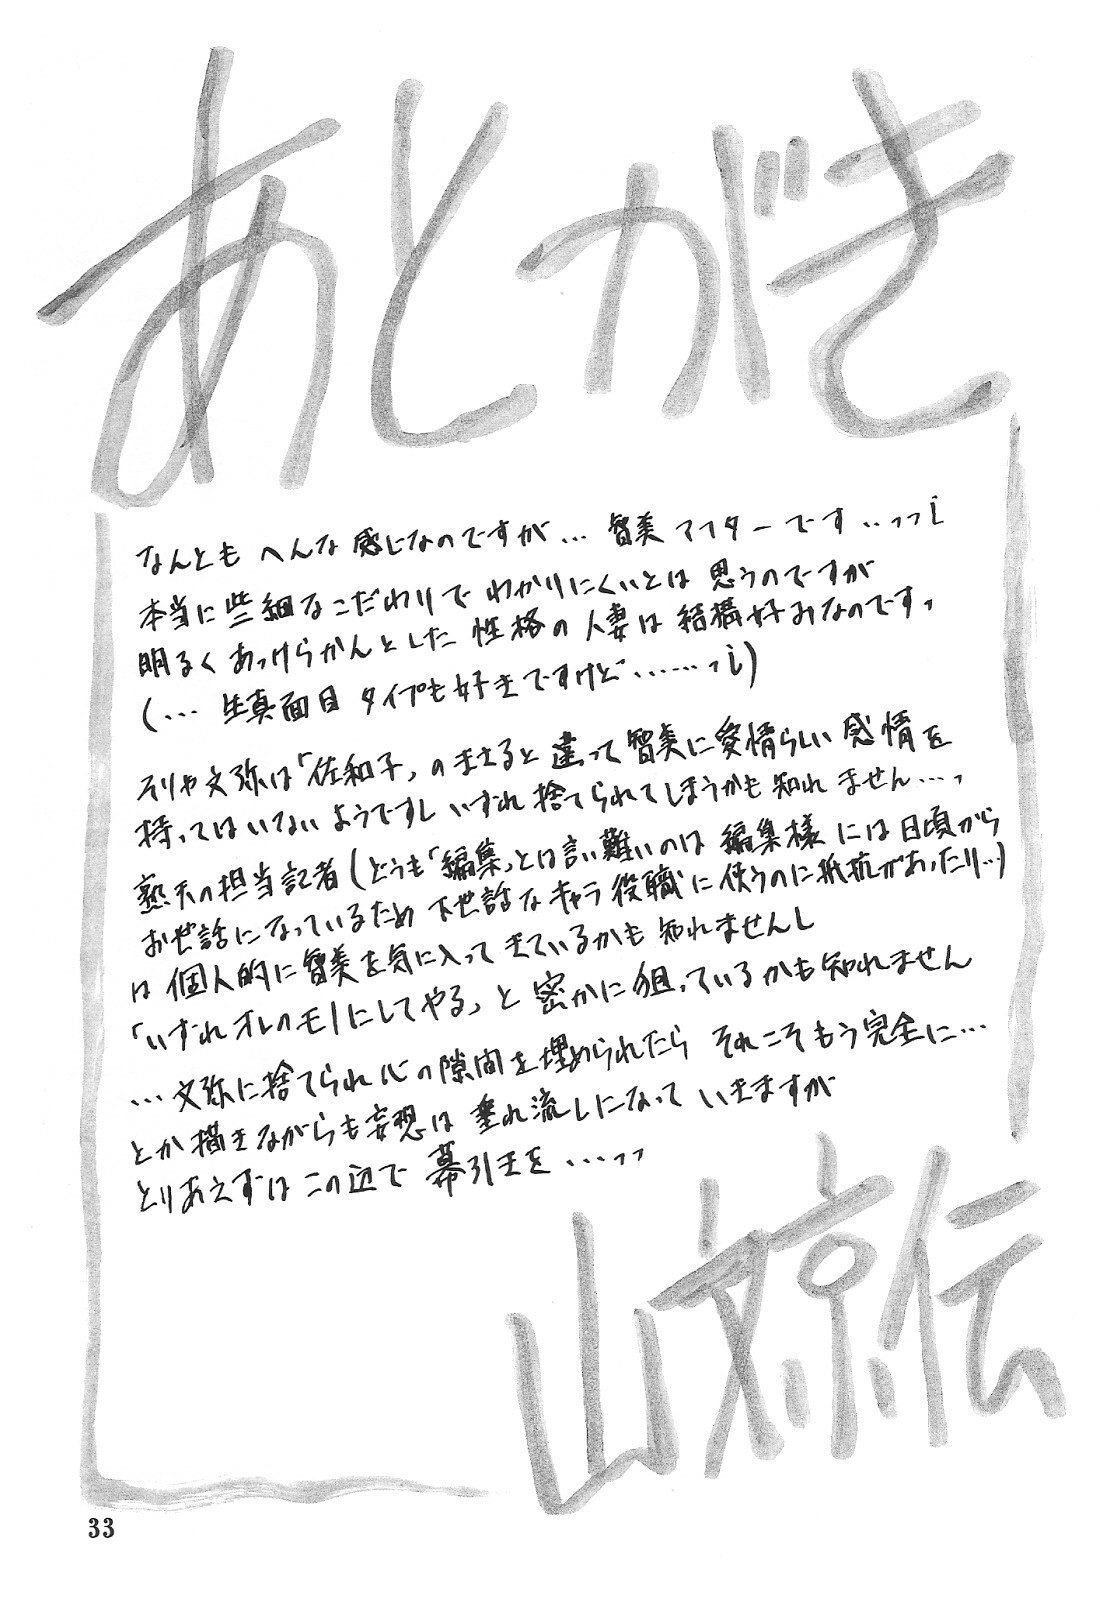 あとがき
なんとも へんな 感じなのですが… 智美 アフターです‥ッッi
本当に些細なこだわりで わかりにくいとは 思うのですが
明るく あっけらかんとした 性格の 人妻は 結構好みなのです、
(… 生真面目 タイプも好きですけど……ッi)
そりゃ文弥は「佐和子」のまさると 違って 智美に愛情らしい 感情を
持ってはいないようですし いずれ 捨てられてしまうかも 知れません…、
熟天の担当記者(どうも「編集」とは言い難いのは 編集様 には日頃から
お世話になっているため 下世話な キャラ 役職に 使うのに抵抗があったり…)
は 個人的に智美を気に入って きているかも 知れませんし
「いずれ オレのモノにしてやる」と 密かに 狙っているかも知れません
…文弥に捨てられ 心の隙間を埋められたら それこそもう完全に…
とか描きながらも妄想は 垂れ流しになって いきますが
とりあえずは この辺で 幕引きを…ッッ
山文京伝
33